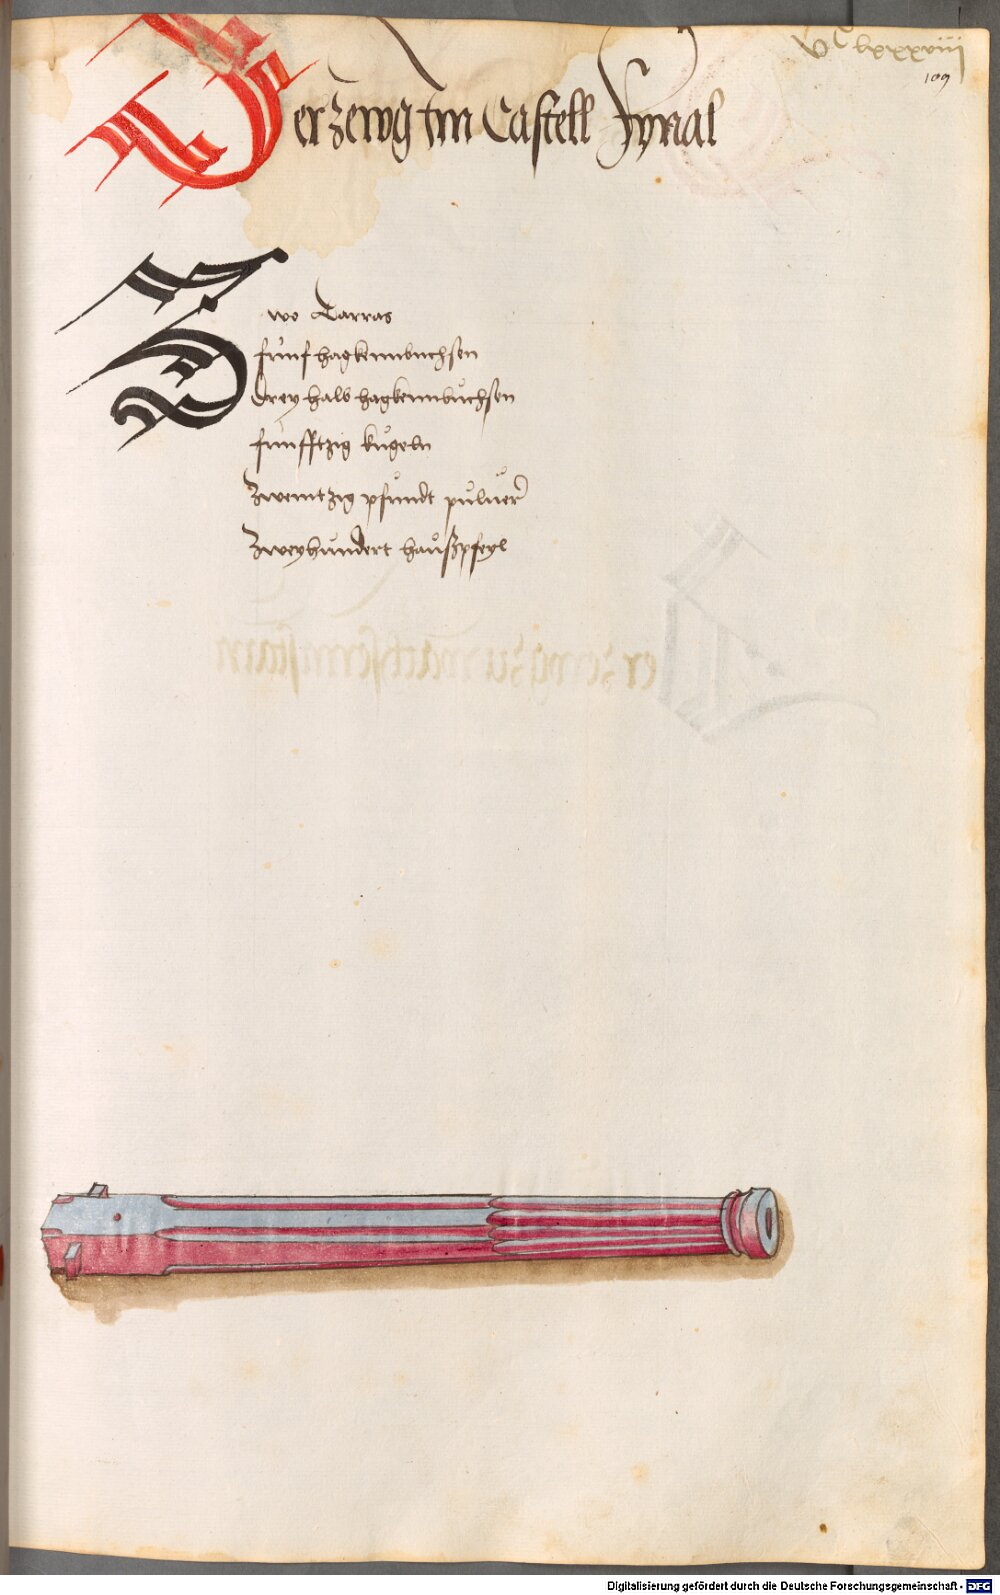 Vᶜ lxxxviii
109
Der Zewg im Castell Fynal
Zwo Tarras
fünf hagkennbuchsen
drey halb hagkennbůchsen
funfftzig kůgeln
Zweintzig pfůndt půluer
Zweyhůndert haůßpfeyl
Digitalisierung gefördert durch die Deutsche Forschungsgemeinschaft - DFG